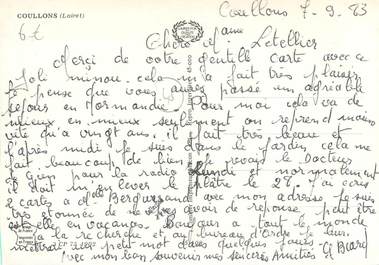 COULLONS (Loiret)
Coullons 7-9-83
6€
Chère Mame Letellier
Merci de votre gentille carte avec ce
joli minou. cela m'a fait très plaisir
je pense que vous aurez passé un agréable
séjour en Normandie. Pour moi cela va de
mieux en mieux seulement on reprend moins
vite qu'à vingt ans. il fait très beau et
l'après midi je suis dans le jardin, cela me
fait beaucoup de bien. Je revois le Docteur
de Gien pour la radio Lundi et normalement
il doit m'enlever le plâtre le 27. J'ai écrit
carte à avec mon adresse je suis
très étonnée de ne pas avoir de réponse peut être
est elle en vacances. tout le monde
à la recherche et au bureau d'ordre. je leur
mettrai un petit mot dans quelques jours.
avec mon bon souvenir mes sincères Amitiés